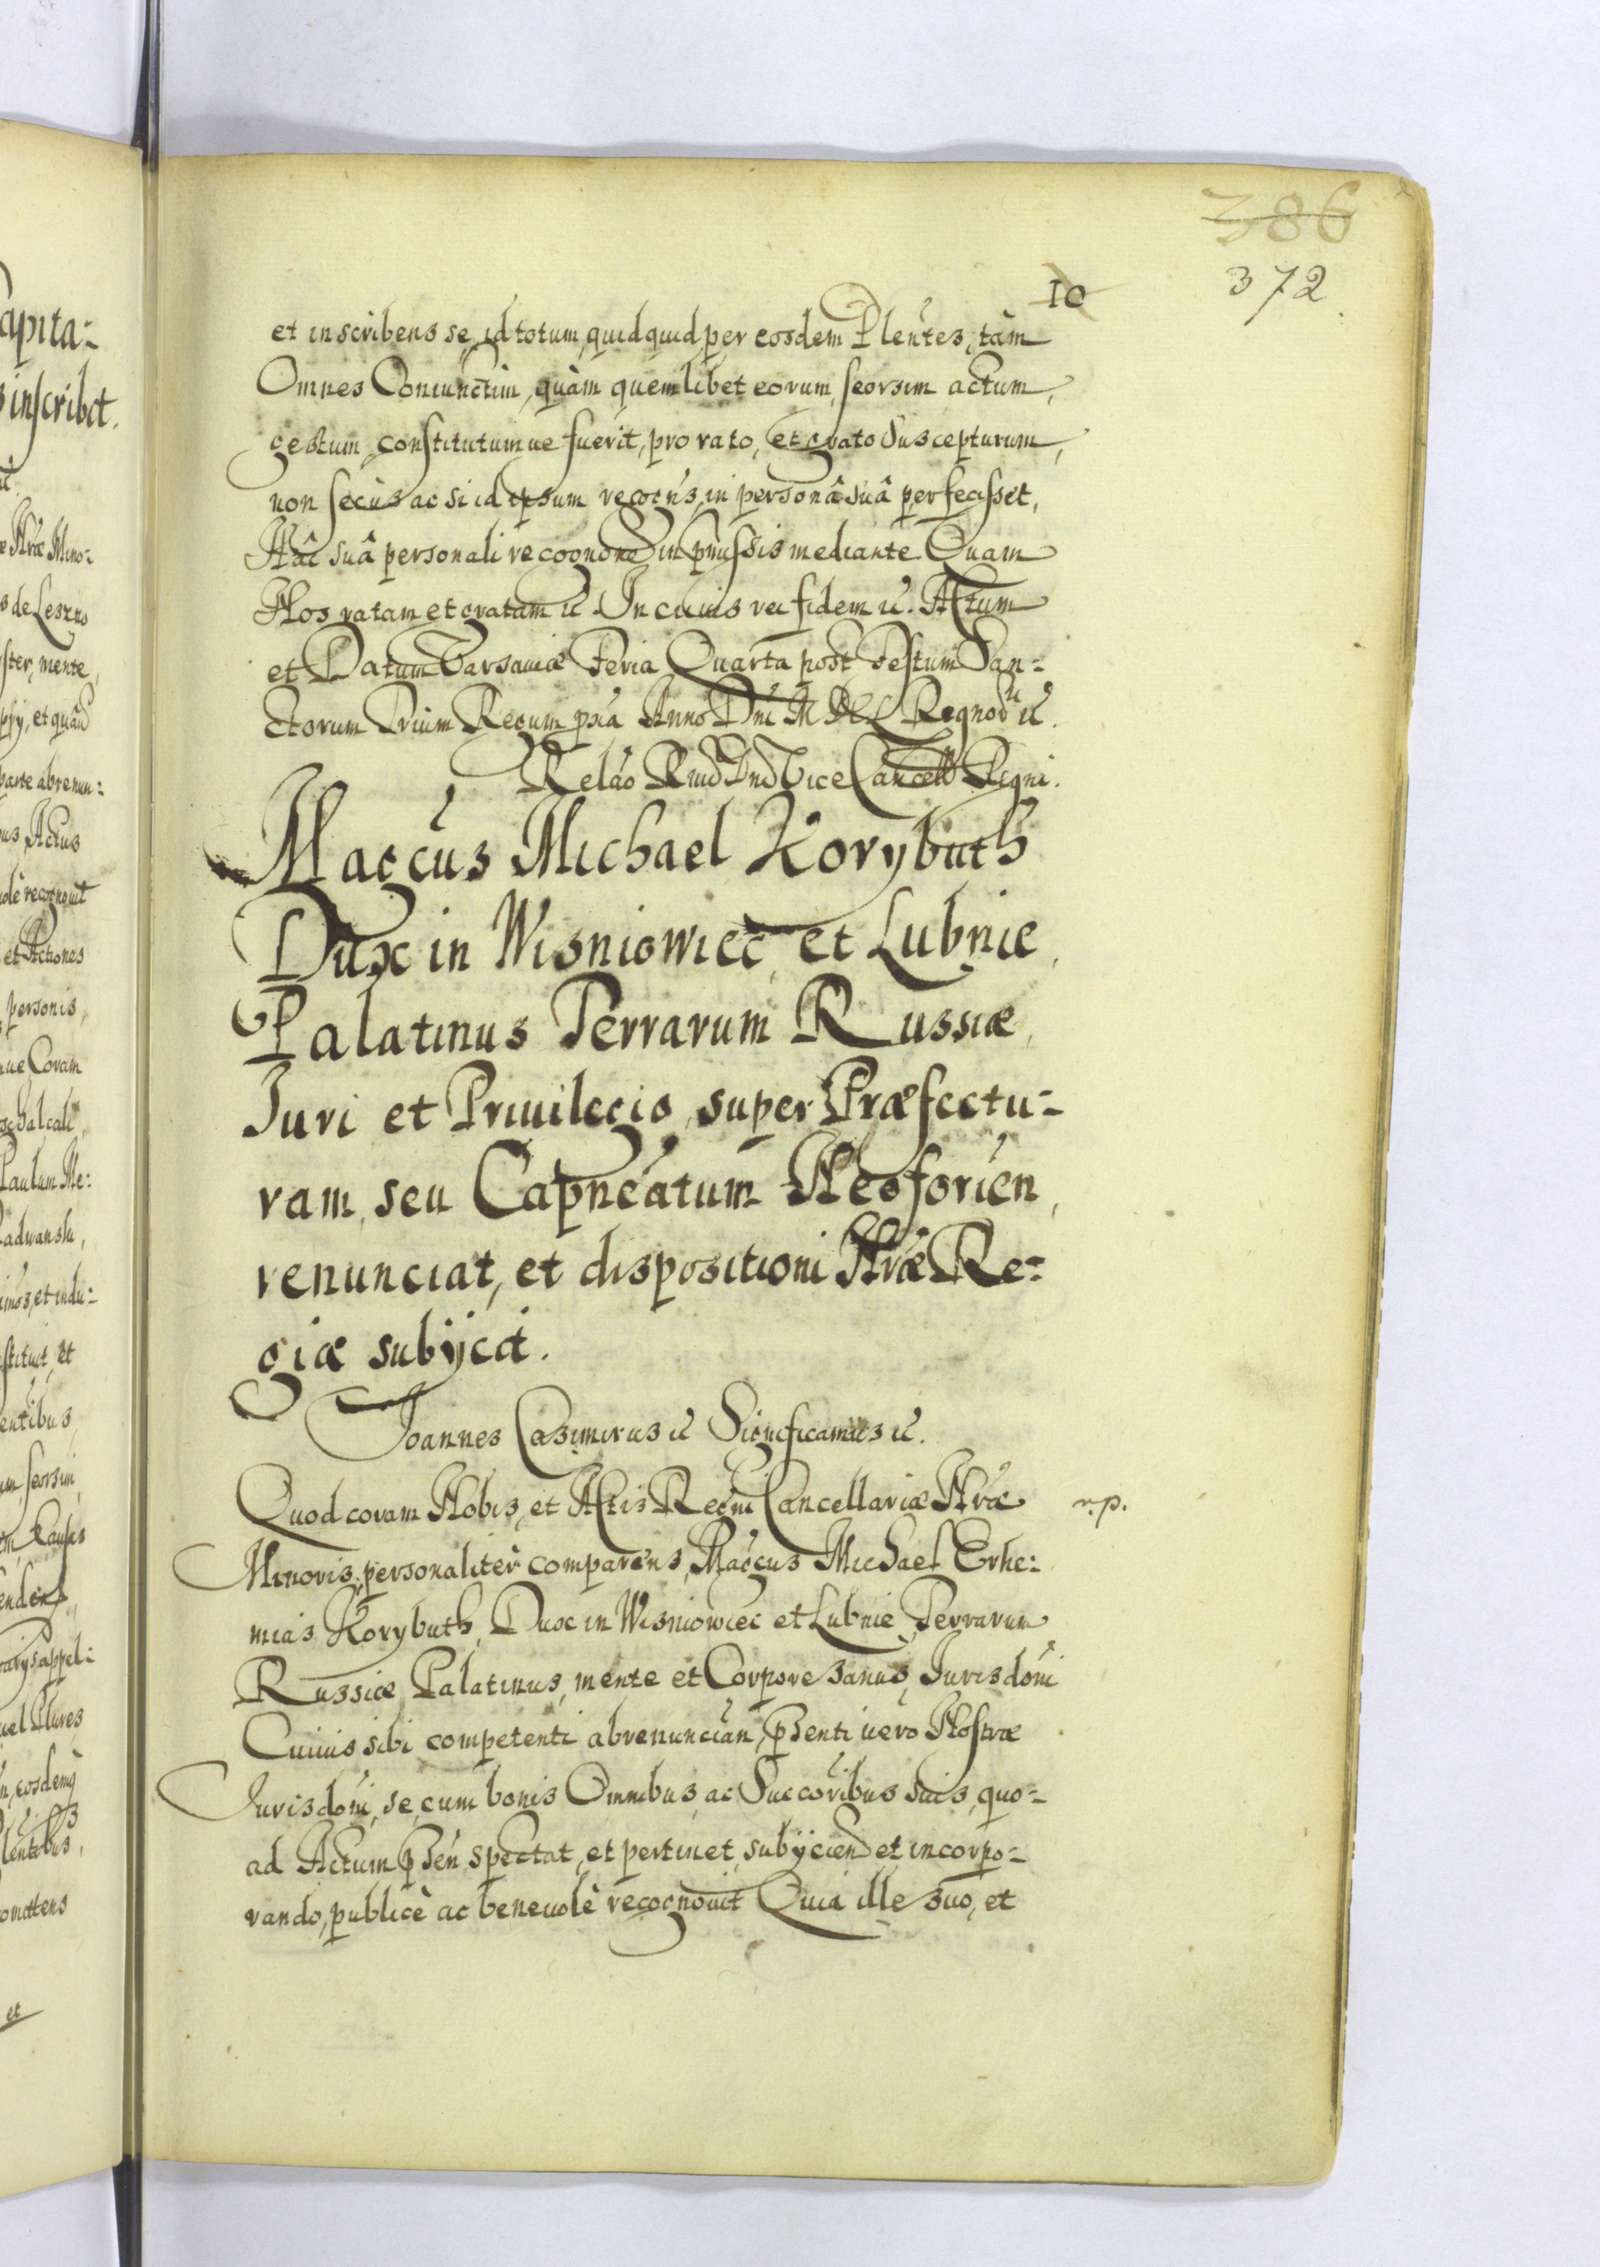 386
372
10
et inscribens se, id totum, quidquid per eosdem Plentes, tàm
Omnes Coniunctim, quàm quemlibet eorum, seorsim actum,
gestum, constitutumue fuerit, pro rato, et grato suscepturum,
non secùs ac si id ipsum recogñs, in personâ suâ perfecisset,
Hâc suâ personali recognoñe in pmissis mediante. Quam
Nos ratam et gratam &c. In cuius rei fidem &c. Actum
et Datum Varsauiæ Feria Quarta post Festum San=
ctorum Trium Regum pxia Anno Dñi MDCL Regnorũ &c.
Relão Rmd Dnd Vice Cancell Regni.
Magcus Michael Korybuth
Dux in Wisniowiec, et Lubnie,
Palatinus Terrarum Russiæ,
Iuri et Priuilegio, super Præfectu=
ram, seu Capneatum Neoforien,
renunciat, et dispositioni Nræ Re=
giæ subijcit.
Joannes Casimirus &c Significamus &c.
Quod coram Nobis, et Actis Regni Cancellariæ Nræ
r.p.
Minoris, personaliter comparens, Magcus Michael Erhe=
mias Korybuth, Dux in Wisniowiec et Lubnie, Terrarum
Russiæ Palatinus, mente et Corpore sanus, Iurisdoni
Cuiuis sibi competenti abrenuncian, psenti uero Nostræ
Iurisdoni, se, cum bonis Omnibus, ac Succoribus suis, quo=
ad Actum psen spectat, et pertinet, subijcien et incorpo=
rando, publicè ac beneuolè recognouit. Quia ille suo, et
apita=
inscribit.
Nræ Mino=
de Leszno
mente,
et quâd
parte abrenun=
Actus
recognouit
et Actiones
personis,
Coram
Paulum Me=
adwanski,
et indu=
et
seorsim,
Causis
appel=
uel Plures,
eosdemq
lentibus,
omittens
et